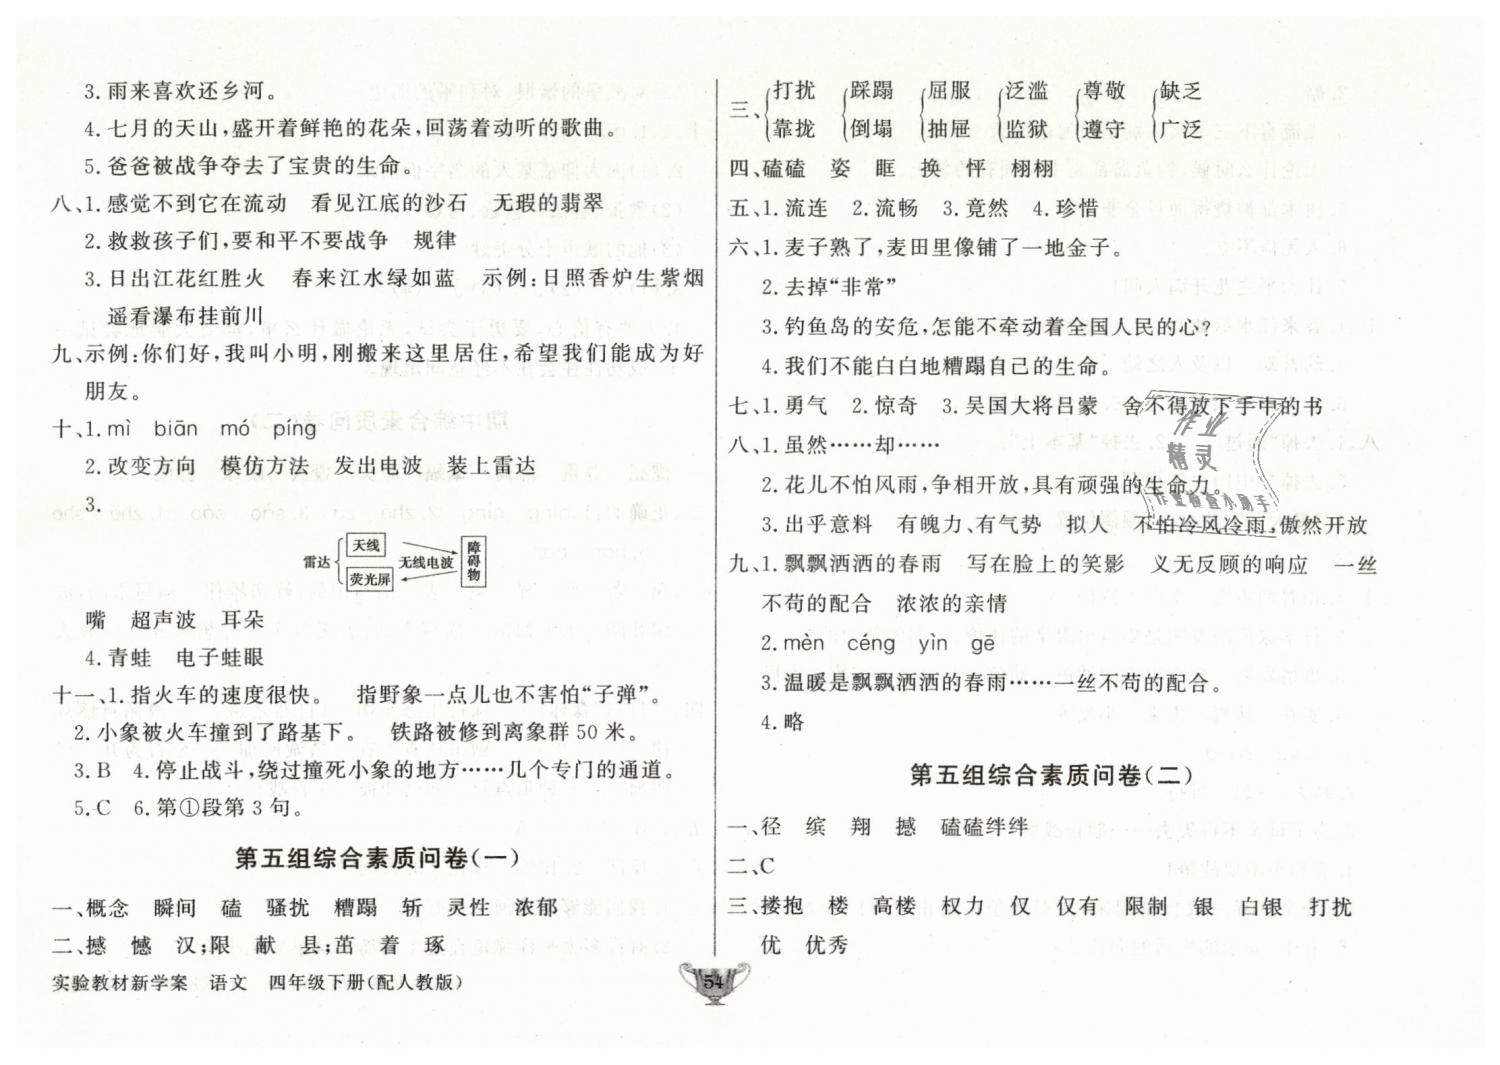 3.雨来喜欢还乡河。
4.七月的天山,盛开着鲜艳的花朵,回荡着动听的歌曲。
5.爸爸被战争夺去了宝贵的生命。
八、1.感觉不到它在流动　看见江底的沙石　无瑕的翡翠
2.救救孩子们,要和平不要战争　规律
3.日出江花红胜火　春来江水绿如蓝　示例:日照香炉生紫烟
遥看瀑布挂前川
九、示例:你们好,我叫小明,刚搬来这里居住,希望我们能成为好
朋友。
十、1.mì　biān　mó　píng
2.改变方向　模仿方法　发出电波　装上雷达
3.
雷达 天线 荧光屏 无线电波 障碍物
嘴　超声波　耳朵
4.青蛙　电子蛙眼
十一、1.指火车的速度很快。　指野象一点儿也不害怕“子弹”。
2.小象被火车撞到了路基下。　铁路被修到离象群50米。
3.B　4.停止战斗,绕过撞死小象的地方……几个专门的通道。
5.C　6.第①段第3句。
第五组综合素质问卷(一)
一、概念　瞬间　磕　骚扰　糟蹋　斩　灵性　浓郁
二、撼　憾　汉;限　献　县;茁　着　琢
实验教材新学案　语文　四年级下册(配人教版)
54
三、{打扰 靠拢 {踩蹋 倒塌 {屈服 抽屉 {泛滥 监狱 {尊敬 遵守 {缺乏 广泛
四、磕磕　姿　眶　换　怦　栩栩
五、1.流连　2.流畅　3.竟然　4.珍惜
六、1.麦子熟了,麦田里像铺了一地金子。
2.去掉“非常”
3.钓鱼岛的安危,怎能不牵动着全国人民的心?
4.我们不能白白地糟蹋自己的生命。
七、1.勇气　2.惊奇　3.吴国大将吕蒙　舍不得放下手中的书
八、1.虽然……却……
2.花儿不怕风雨,争相开放,具有顽强的生命力。
3.出乎意料　有魄力、有气势　拟人　不怕冷风冷雨,傲然开放
九、1.飘飘洒洒的春雨　写在脸上的笑影　义无反顾的响应　一丝
不苟的配合　浓浓的亲情
2.mèn　céng　yìn　gē
3.温暖是飘飘洒洒的春雨……一丝不苟的配合。
4.略
第五组综合素质问卷(二)
一、径　缤　翔　撼　磕磕绊绊
二、C
三、搂抱　楼　高楼　权力　仅　仅有　限制　银　白银　打扰
优　优秀
作业
精灵
作业检查小助手